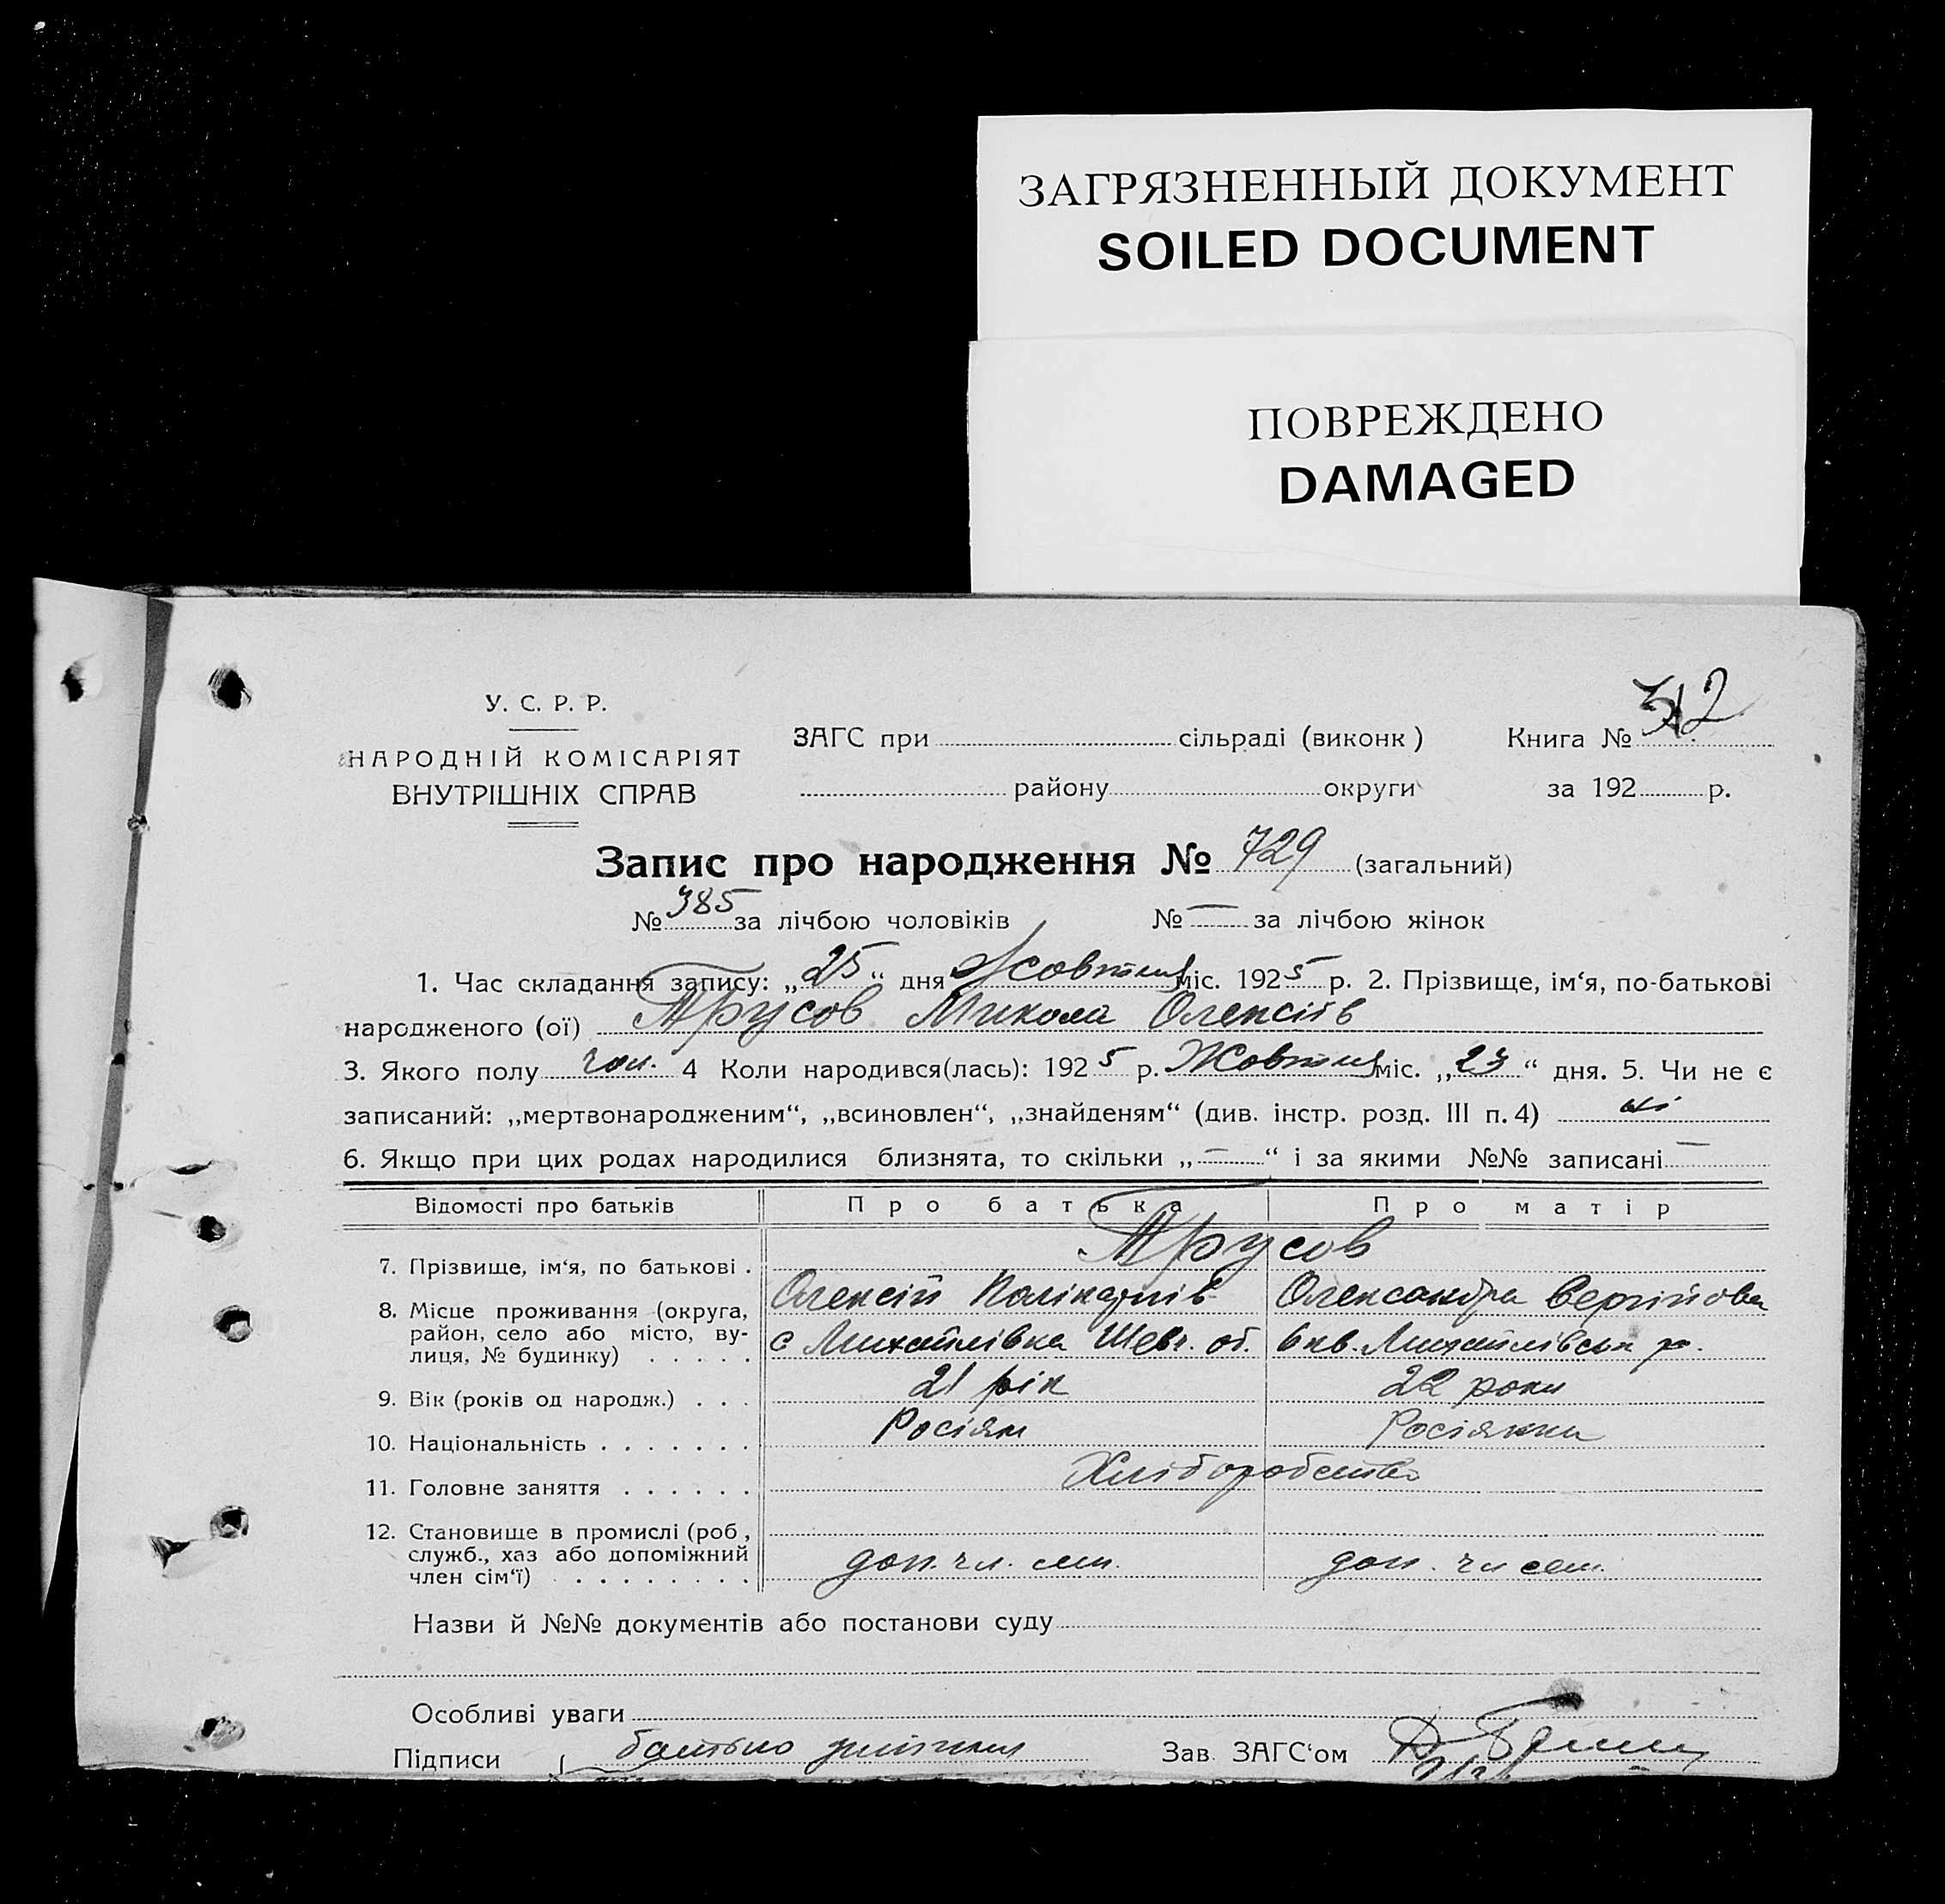 ЗАГРЯЗНЕННЫЙ ДОКУМЕНТ
SOILED DOCUMENT
ПОВРЕЖДЕНО
DAMAGED
У. С. Р. Р.
НАРОДНІЙ КОМІСАРІЯТ
ВНУТРІШНІХ СПРАВ
ЗАГС при сільраді (виконк) Книга №
району округи за 192 р.
Запис про народження № 729 (загальний)
№ 385 за лічбою чоловіків № — за лічбою жінок
1. Час складання запису: „25“ дня Жовтня міс. 1925 р. 2. Прізвище, ім‘я, по-батькові
народженого (ої) Трусов Микола Олексіїв
3. Якого полу чол. 4 Коли народився(лась): 1925 р. Жовтня міс. „23“ дня. 5. Чи не є
записаний: „мертвонародженим“, „всиновлен“, „знайденям“ (див. інстр. розд. III п. 4) ні
6. Якщо при цих родах народилися близнята, то скільки „—“ і за якими №№ записані —
Відомості про батьків Про батька Про матір
7. Прізвище, ім‘я, по батькові . Трусов
Олексій Полікарпів Олександра
8. Місце проживання (округа, район, село або місто, ву-
лиця, № будинку) . . . . . с Михайлівка Шевч. об.
9. Вік (років од народж.) . . . 21 рік 22 роки
10. Національність . . . . . . . Росіян Росіянка
11. Головне заняття . . . . . . Хліборобство
12. Становище в промислі (роб, служб., хаз або допоміжний
член сім‘ї) . . . . . . . . доп. чл. сем. доп. чл сем.
Назви й №№ документів або постанови суду
Особливі уваги
Підписи батько Зав. ЗАГС‘ом